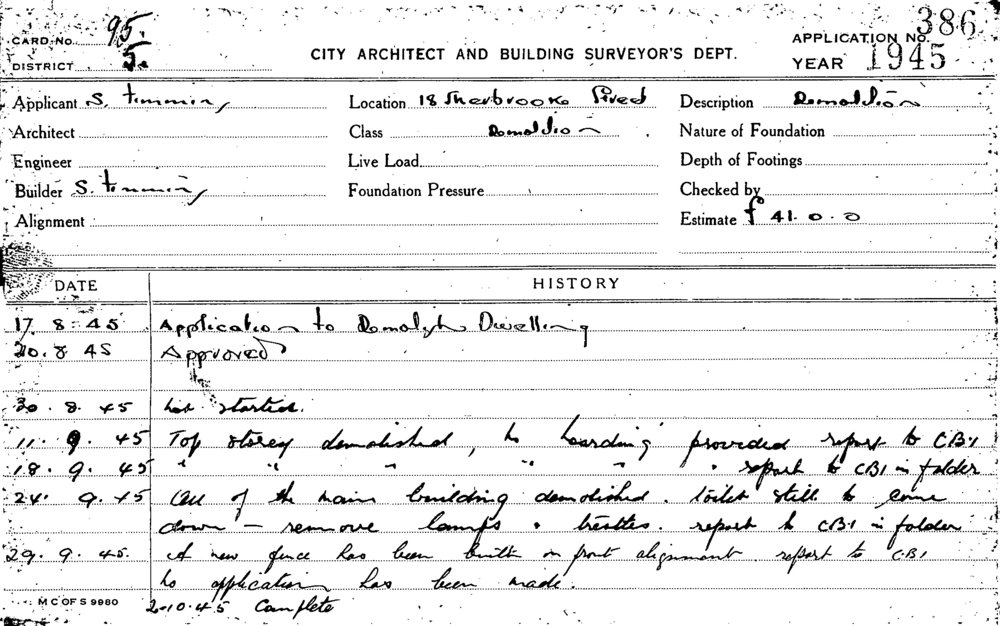 CARD No. 95.
DISTRICT 5.
CITY ARCHITECT AND BUILDING SURVEYOR'S DEPT.
APPLICATION No. 386
YEAR 1945
Applicant S. Timmins
Location 18 Sherbrooke Street
Description Demolition
Architect
Class Demolition
Nature of Foundation
Engineer
Live Load
Depth of Footings
Builder S. Timmins
Foundation Pressure
Checked by
Alignment
Estimate £ 41. 0. 0
DATE HISTORY
17. 8. 45 Application to Demolish Dwelling
20. 8 45 Approved
30. 8. 45 Not started.
11. 9. 45 Top storey demolished, no hoarding provided report to CBI
18. 9. 45 " " " " " " report to CBI in folder
24. 9. 45 All of the main building demolished. toilet still to come
down – remove lamps & trestles. report to CBI in folder
29. 9. 45. A new fence has been built on front alignment. report to CBI
No application has been made.
M C OF S 9980 2-10.45 Complete